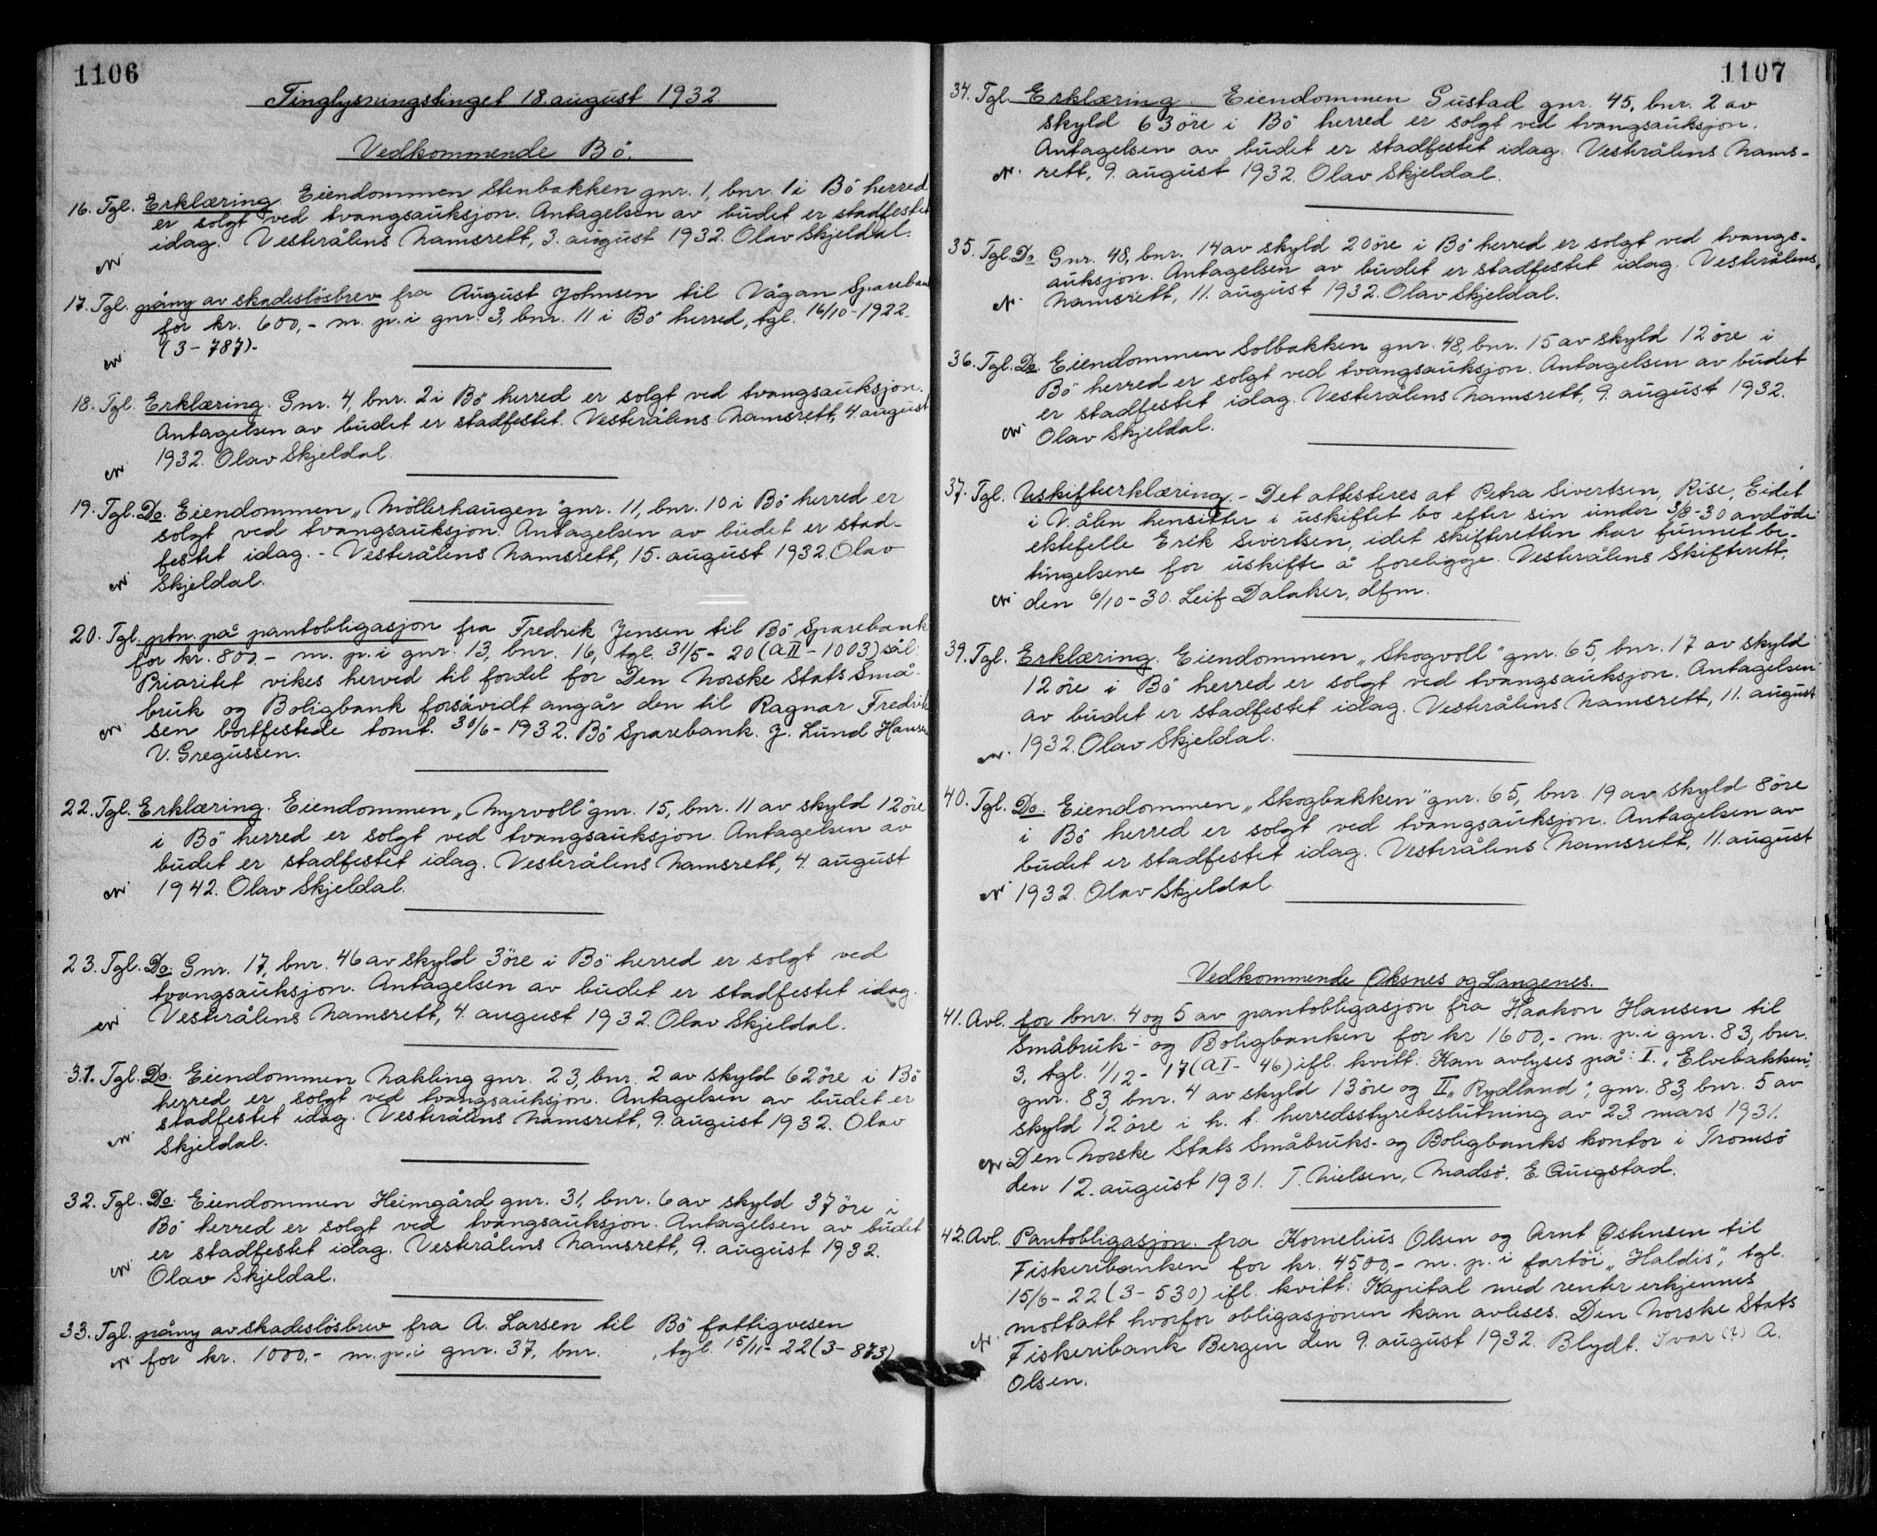 1106
Tinglysningstinget 18. august 1932.
Vedkommende Bö.
16. Tgl. Erklæring. Eiendommen Stenbakken gnr. 1, bnr. 1 i Bö herred
er solgt ved tvangsauksjon. Antagelsen av budet er stadfestet
idag. Vesterålens Namsrett, 3. august 1932. Olav Skjeldal.
17. Tgl. påny av skadeslösbrev fra August Johnsen til Vågan Spareban
for kr. 600,- m. p. i gnr. 3, bnr. 11 i Bö herred, tgl. 16/10-1922.
(3-787).-
18. Tgl. Erklæring. Gnr. 4, bnr. 2 i Bö herred er solgt ved tvangsauksjon.
Antagelsen av budet er stadfestet. Vesterålens Namsrett, 4 august
1932. Olav Skjeldal.
19. Tgl. Do. Eiendommen „Möllerhaugen" gnr. 11, bnr. 10 i Bö herred er
solgt ved tvangsauksjon. Antagelsen av budet er stad-
festet idag. - Vesterålens Namsrett, 15. august 1932. Olav
Skjeldal.
20. Tgl. ptn. på pantobligasjon fra Fredrik Jensen til Bö Sparebank
for kr. 800,- m. p. i gnr. 13, bnr. 16, tgl. 31/5-20 (A II-1003) sål:
Prioritet vikes herved til fordel for Den Norske Stats Små-
bruk og Boligbank forsåvidt angår den til Ragnar Fredrik
sen bortfestede tomt. 30/6-1932. Bö Sparebank. J. Lund Hansen
V. Gregussen.
22. Tgl. Erklæring. Eiendommen „Myrvoll" gnr. 15, bnr. 11 av skyld 12 öre
i Bö herred er solgt ved tvangsauksjon. Antagelsen av
budet er stadfestet idag. Vesterålens Namsrett, 4. august
1942. Olav Skjeldal.
23. Tgl. Do. Gnr. 17, bnr. 46 av skyld 3 öre i Bö herred er solgt ved
tvangsauksjon. Antagelsen av budet er stadfestet idag.
Vesterålens Namsrett, 4. august 1932. Olav Skjeldal.
31. Tgl. Do. Eiendommen Nakling gnr. 23, bnr. 2 av skyld 62 öre i Bö
herred er solgt ved tvangsauksjon. Antagelsen av budet er
stadfestet idag. Vesterålens Namsrett, 9. august 1932. Olav
Skjeldal.
32. Tgl. Do. Eiendommen Heimgård gnr. 31, bnr. 6 av skyld 37 öre i
Bö herred er solgt ved tvangsauksjon. Antagelsen av budet
er stadfestet idag. Vesterålens Namsrett, 9. august 1932.
Olav Skjeldal.
33. Tgl. påny av skadeslösbrev fra A. Larsen til Bö fattigvesen
for kr. 1000,- m. p. i gnr. 37, bnr. , tgl. 15/11-22 (3-873)
1107
34. Tgl. Erklæring. Eiendommen Gustad gnr. 45, bnr. 2 av
skyld 63 öre i Bö herred er solgt ved tvangsauksjon.
Antagelsen av budet er stadfestet idag. Vesterålens Nams-
rett, 9. august 1932. Olav Skjeldal.
35. Tgl. Do Gnr. 48, bnr. 14 av skyld 20 öre i Bö herred er solgt ved tvangs-
auksjon. Antagelsen av budet er stadfestet idag. Vesterålens
Namsrett, 11. august 1932. Olav Skjeldal.
36. Tgl. Do. Eiendommen Solbakken gnr. 48, bnr. 15 av skyld 12 öre i
Bö herred er solgt ved tvangsauksjon. Antagelsen av budet
er stadfestet idag. Vesterålens Namsrett, 9. august 1932.
Olav Skjeldal.
37. Tgl. Uskifteerklæring. - Det attesteres at Petra Sivertsen, Rise, Eidet
i V.ålen hensitter i uskiftet bo efter sin under 3/8-30 avdöde
ektefelle Erik Sivertsen, idet skifteretten har funnet be-
tingelsene for uskifte å foreligge. Vesterålens Skifterett,
den 6/10-30. Leif Dalaker, dfm.
39. Tgl. Erklæring. Eiendommen „Skogvoll" gnr. 65, bnr. 17 av skyld
12 öre i Bö herred er solgt ved tvangsauksjon. Antagelsen
av budet er stadfestet idag. Vesterålens Namsrett, 11. august
1932. Olav Skjeldal.
40. Tgl. Do. Eiendommen „Skogbakken" gnr. 65, bnr. 19 av skyld 8 öre
i Bö herred er solgt ved tvangsauksjon. Antagelsen av
budet er stadfestet idag. Vesterålens Namsrett, 11. august
1932. Olav Skjeldal.
Vedkommende Öksnes og Langenes.
41. Avl. for bnr. 4 og 5 av pantobligasjon fra Haakon Hansen til
Småbruk- og Boligbanken for kr 1600,- m. p. i gnr. 83, bnr.
3, tgl. 1/12-17 (A I-46) ifl. kvitt: Kan avlyses på: I. „Elvebakken",
gnr. 83, bnr. 4 av skyld 13 öre og II „Rydland", gnr. 83, bnr. 5 av
skyld 12 öre i h. t. herredsstyrebeslutning av 23 mars 1931.
Den Norske Stats Småbruks- og Boligbanks kontor i Tromsö
den 12. august 1931. T. Nielsen, Madsö. E. Quigstad.
42. Avl. Pantobligasjon fra Kornelius Olsen og Arnt Östnsen til
Fiskeribanken for kr. 4500,- m. p. i fartöi „Haldis", tgl.
15/6-22 (3-530) ifl. kvitt: Kapital med renter erkjennes
mottatt hvorfor obligasjonen kan avleses. Den Norske Stats
Fiskeribank Bergen den 9. august 1932. Blydt. Ivar (?) A.
Olsen.